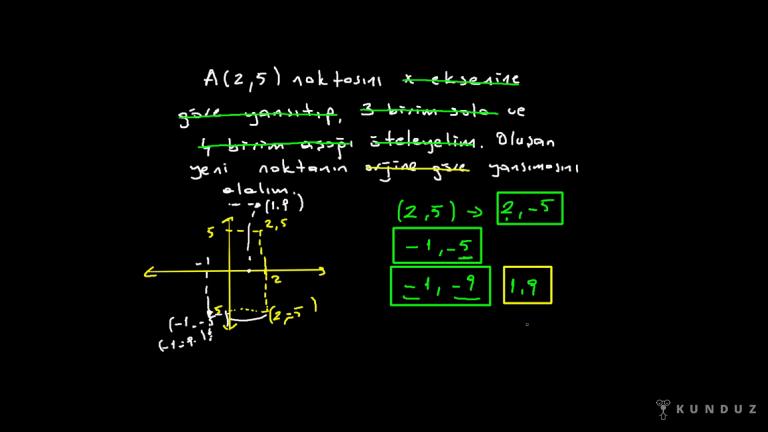 A(2,5) noktasını x eksenine
göre yansıtıp, 3 birim sola ve
4 birim aşağı öteleyelim. Oluşan
yeni noktanın orjine göre yansımasını
alalım.
(1,9)
5
2,5
-1
2
-5
(2,-5)
(-1,-
(-1-9
(2,5) → 2,-5
-1,-5
-1,-9 1,9
KUNDUZ